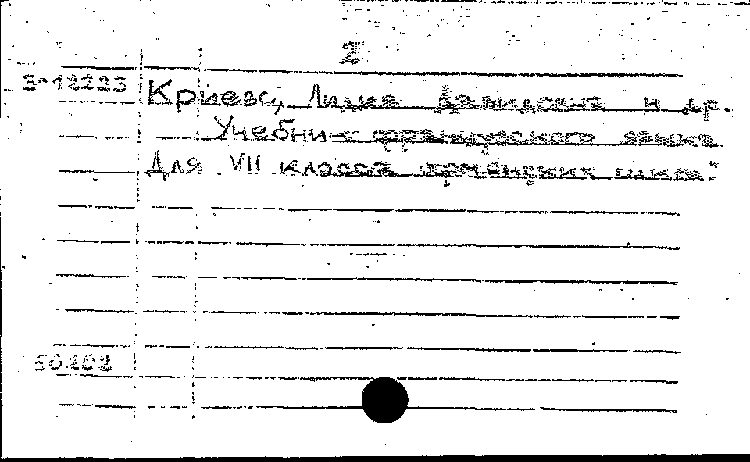 2
Криевс, Лидия Давидовна и др.
Учебник французского языка
Для VII класса армянских школ.